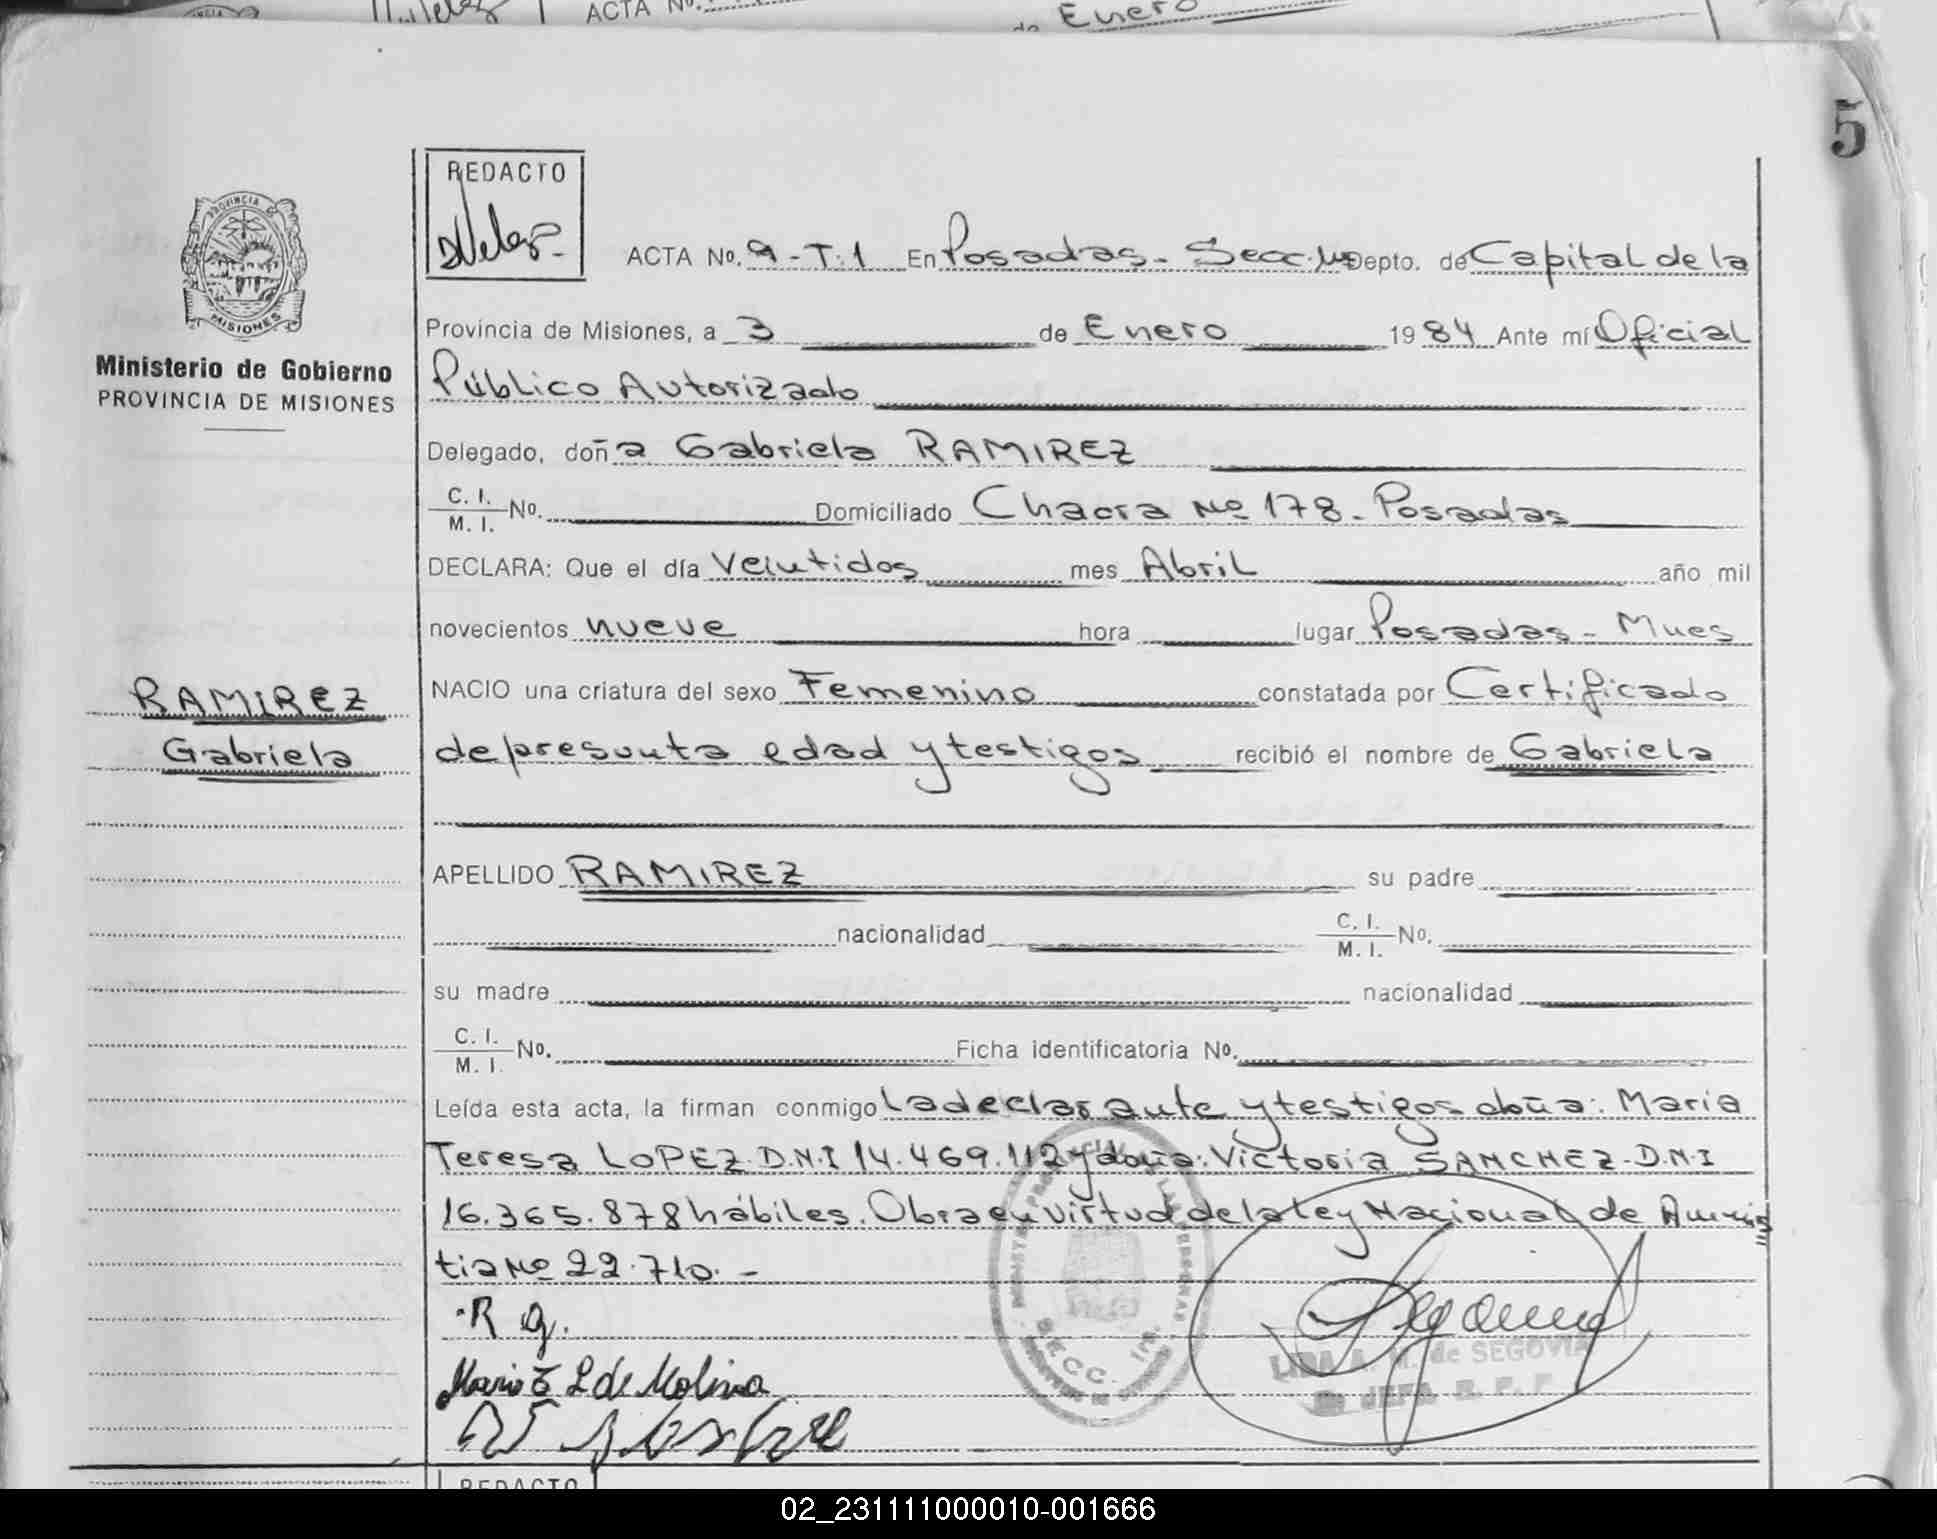 ACTA No.
de Enero
5
REDACTO
PROVINCIA DE
MISIONES
Ministerio de Gobierno
PROVINCIA DE MISIONES
ACTA No. 9-T.1 En Posadas - Secc. Depto. de Capital de la
Provincia de Misiones, a 3 de Enero 1984 Ante mí Oficial
Público Autorizado
Delegado, doña Gabriela RAMIREZ
C. I. / M. I. No. Domiciliado Chacra Nº 178 - Posadas
DECLARA: Que el día Veintidos mes Abril año mil
novecientos nueve hora lugar Posadas - Mnes
NACIO una criatura del sexo Femenino constatada por Certificado
RAMIREZ
Gabriela
de presunta edad y testigos recibió el nombre de Gabriela
APELLIDO RAMIREZ su padre
nacionalidad C. I. / M. I. No.
su madre nacionalidad
C. I. / M. I. No. Ficha identificatoria No.
Leída esta acta, la firman conmigo la declarante y testigos doña: Maria
Teresa LOPEZ D.N.I 14.469.112 y doña: Victoria SANCHEZ - D.N.I
16.365.878 hábiles. Obra en virtud de la ley Nacional de Amnis
tia Nº 22.710. -
R g.
Maria T L de Molina
LIDIA A. M. de SEGOVIA
JEFA R. P. P
REDACTO
02_231111000010-001666